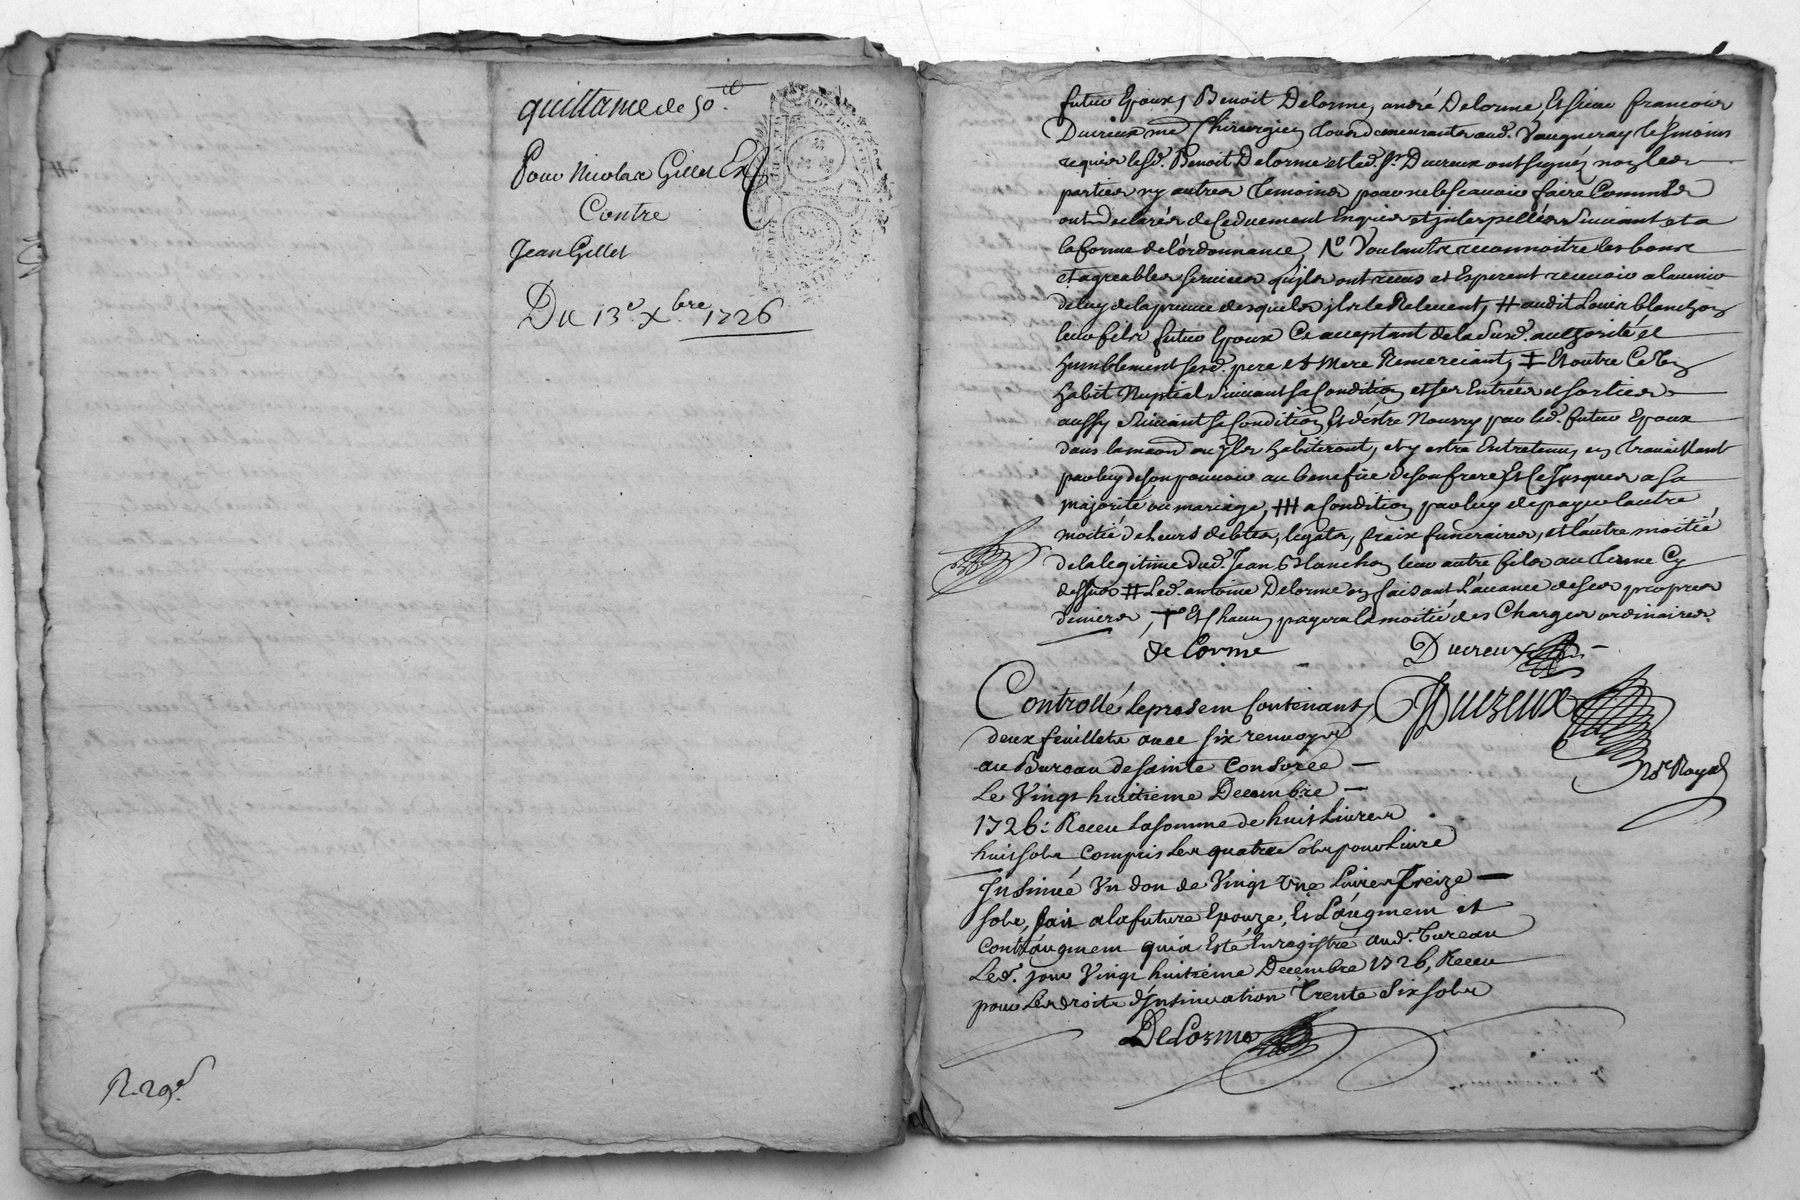 quittance de 50ᵗᵗ
Pour Nicolas Gillet
Contre
Jean Gillet
Du 13ᵉ Xbre 1726
R. 29ˢ
futur Epoux, Benoit Delorme, andré Delorme, Et sieur francois
Ducreux me Chirurgien tous demeurants aud. Vaugneray tesmoins
requis led. Benoit Delorme et led. Sr. Ducreux ont signé, non les
parties ny autres temoins pour ne le scavoir faire comme
ont declarés de ce duement Enquis et interpellés suivant et a
la forme de l'ordonnance, Voulants reconnoitre les bons
et agreables services qu'ils ont receus et Esperent recevoir a lavenir
de luy de la preuve desquels ils le Relevent, # audit Louis blanchon
leur fils futur Epoux Ce acceptant de la susd. authorité et
humblement sesd. pere et Mere Remerciant, ‡ Et outre ce
habit Nuptial suivant sa Condition et ses Entrées et sorties
aussy suivant sa Condition, Et d'estre Nourry par led. futur Epoux
dans la maison ou ils habiteront, et y estre Entretenu, en travaillant
par luy de son pouvoir au benefice de son frere Et ce jusques a sa
majorité ou mariage, ## a Condition par luy de payer l'autre
moitié de leurs debtes, legats, fraix funeraires, et l'autre moitié
de la legitime dud. Jean Blanchon leur autre fils au terme cy
dessus # Led. antoine Delorme en faisant l'avance de ses propres
deniers, Et Chacun payera la moitié des Charges ordinaires
delorme Ducreux
Controllé le present Contenant Ducreux
deux feuillets avec six renvoys
au Bureau de sainte Consorce Nore Royal
Le Vingt huitieme Decembre
1726: Receu la somme de huit Livres
huit sols compris les quatre sols pour Livre
Insinué Un don de Vingt Une Livres Treize
sols, fait a la future Epouze, Et L'augment et
contraugment qui a Esté Enregistré aud. Bureau
Led. jour Vingt huitiéme Decembre 1726, Receu
pour Les droits d'Insinuation Trente Six sols
Delorme